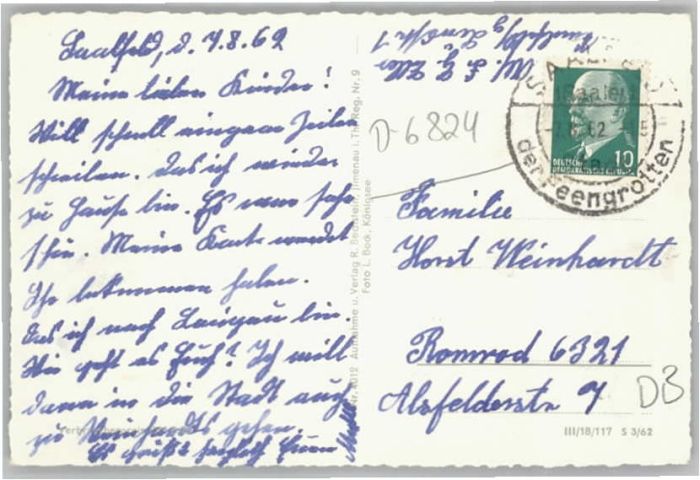 Saalfeld, d. 7.8.62
Meine lieben Kinder!
Will schnell einige Zeilen
schreiben. Das ich wieder
zu Hause bin. Es war sehr
schön. Meine Karte werdet
Ihr bekommen haben.
das ich nach Langau bin.
Wie geht es Euch? Ich will
dann in die Stadt auch
zu Weinhardts gehen.
Es grüßt herzlich Eure
D-6824
SAALFELD
(Saale)
62
der Feengrotten
DEUTSCHE
DEMOKRATISCHE REPUBLIK
10
Familie
Horst Weinhardt
Romrod 6321
Alsfelderstr 7
DB
Aufnahme u. Verlag R. Bechstein, Jlmenau i. Th. Reg. Nr. 9
Foto L. Bock, Königsee
III/18/117 S 3/62